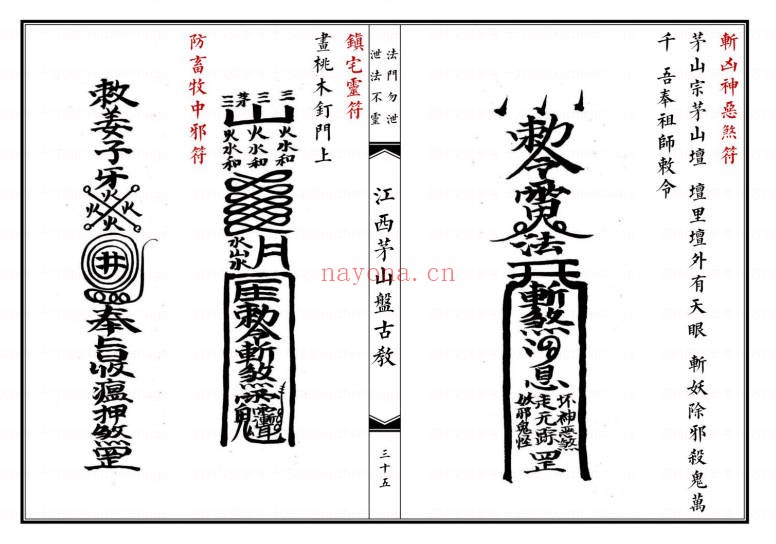 斬凶神惡煞符
茅山宗茅山壇 壇里壇外有天眼 斬妖除邪殺鬼萬
千 吾奉祖師敕令
敕令
法
斬煞消息
坏神惡煞
走无踪
妖邪鬼怪
罡
法門勿泄
泄法不靈
江西茅山盤古教
三十五
鎮宅靈符
畫桃木釘門上
三三三
茅山
火水和
火水和
火水和
水山水
月
敕令斬煞
防畜牧中邪符
敕姜子牙
火火火火
井
奉旨收瘟押煞罡
nayona.cn